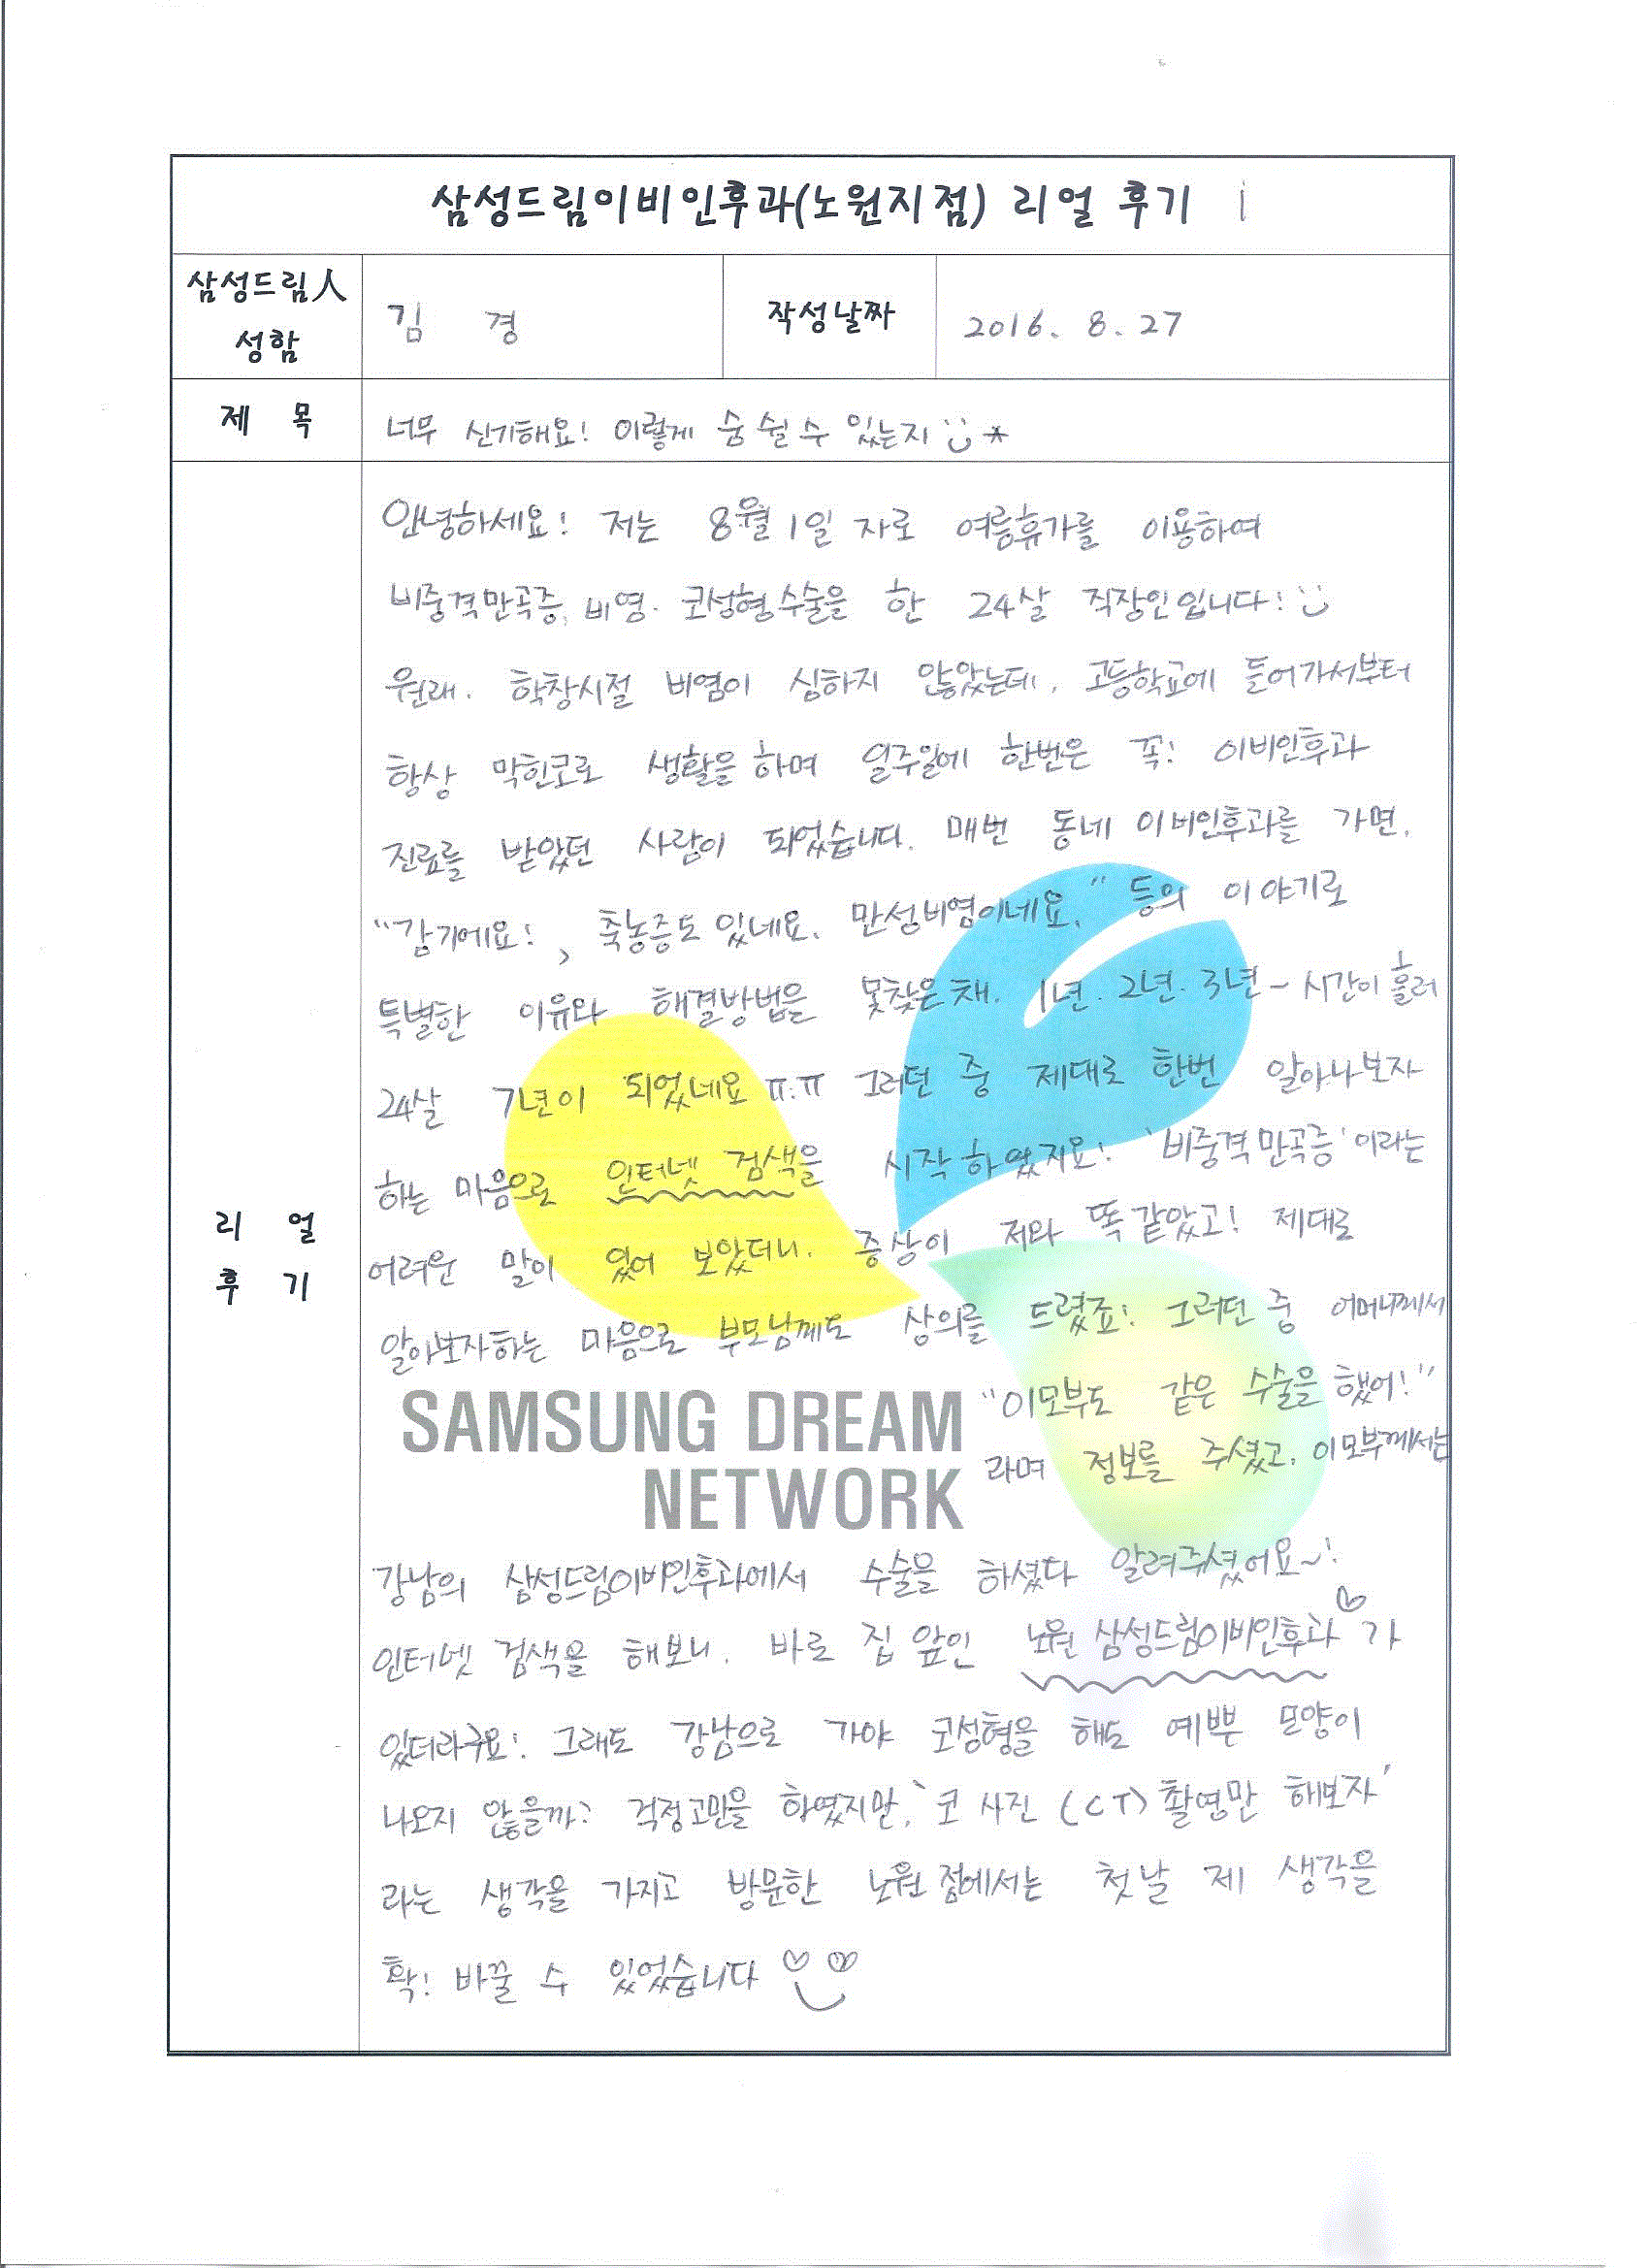 삼성드림이비인후과(노원지점) 리얼 후기 i
삼성드림人
성함
김 경
작성날짜
2016. 8. 27
제 목
너무 신기해요! 이렇게 숨 쉴 수 있는지
안녕하세요! 저는 8월 1일 자로 여름휴가를 이용하여
비중격만곡증, 비염. 코성형수술을 한 24살 직장인입니다!
원래. 학창시절 비염이 심하지 않았는데, 고등학교에 들어가서부터
항상 막힌코로 생활을 하며 일주일에 한번은 꼭! 이비인후과
진료를 받았던 사람이 되었습니다. 매번 동네 이비인후과를 가면,
"감기에요!, 축농증도 있네요. 만성비염이네요." 등의 이야기로
특별한 이유와 해결방법은 못찾은채. 1년. 2년. 3년~ 시간이 흘러
24살 7년이 되었네요 ㅠ.ㅠ 그러던 중 제대로 한번 알아나보자
하는 마음으로 인터넷 검색을 시작하였지요! '비중격만곡증'이라는
어려운 말이 있어 보았더니. 증상이 저와 똑같았고! 제대로
알아보자하는 마음으로 부모님께도 상의를 드렸죠! 그러던 중 어머니께서
"이모부도 같은 수술을 했어!"
라며 정보를 주셨고. 이모부께서는
SAMSUNG DREAM
NETWORK
리 얼
후 기
강남의 삼성드림이비인후과에서 수술을 하셨다 알려주셨어요~!
인터넷 검색을 해보니. 바로 집 앞인 노원 삼성드림이비인후과♡가
있더라구요! 그래도 강남으로 가야 코성형을 해도 예쁜 모양이
나오지 않을까? 걱정고민을 하였지만, '코 사진 (CT) 촬영만 해보자'
라는 생각을 가지고 방문한 노원점에서는 첫날 제 생각을
확! 바꿀 수 있었습니다